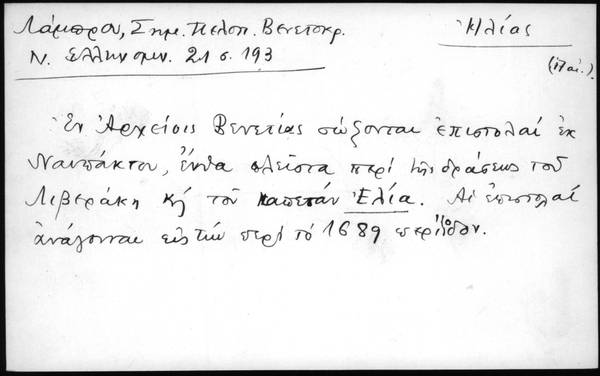 Λάμπρου, Σημ. Πελοπ. Βενετοκρ.
Ν. Ελληνομν. 21 σ. 193
Ἠλίας
Ἐν Ἀρχείοις Βενετίας σώζονται ἐπιστολαί ἐκ
Ναυπάκτου, ἔνθα πλεῖστα περί τῆς δράσεως τοῦ
Λιβεράκη κ΄ τοῦ καπετάν Ἐλία. Αἱ ἐπιστολαί
ἀνάγονται εἰς τήν περί τό 1689 περίοδον.